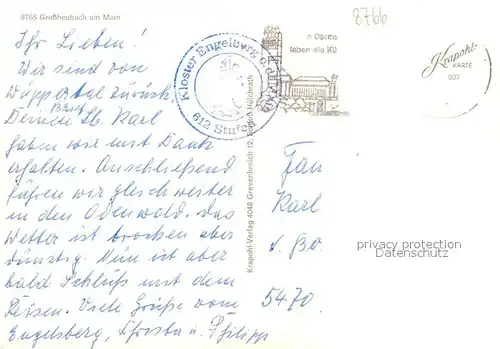 8766 Großheubach am Main
8766
Ihr Lieben!
Wir sind von
Wuppertal zurück.
Deinen Brief lb. Karl
haben wir mit Dank
erhalten. Anschließend
fuhren wir gleich weiter
in den Odenwald. Das
Wetter ist trocken aber
dunstig. Nun ist aber
bald Schluß mit dem
Reisen. Viele Grüße vom
Engelsberg, u. Philipp
Kloster Engelburg a. d.
612 Stufen
n Darms
leben die Kü
Krapohl-Verlag 4048 Grevenbroich 12,
Krapohl-
KARTE
Karl
5430
privacy protection
Datenschutz